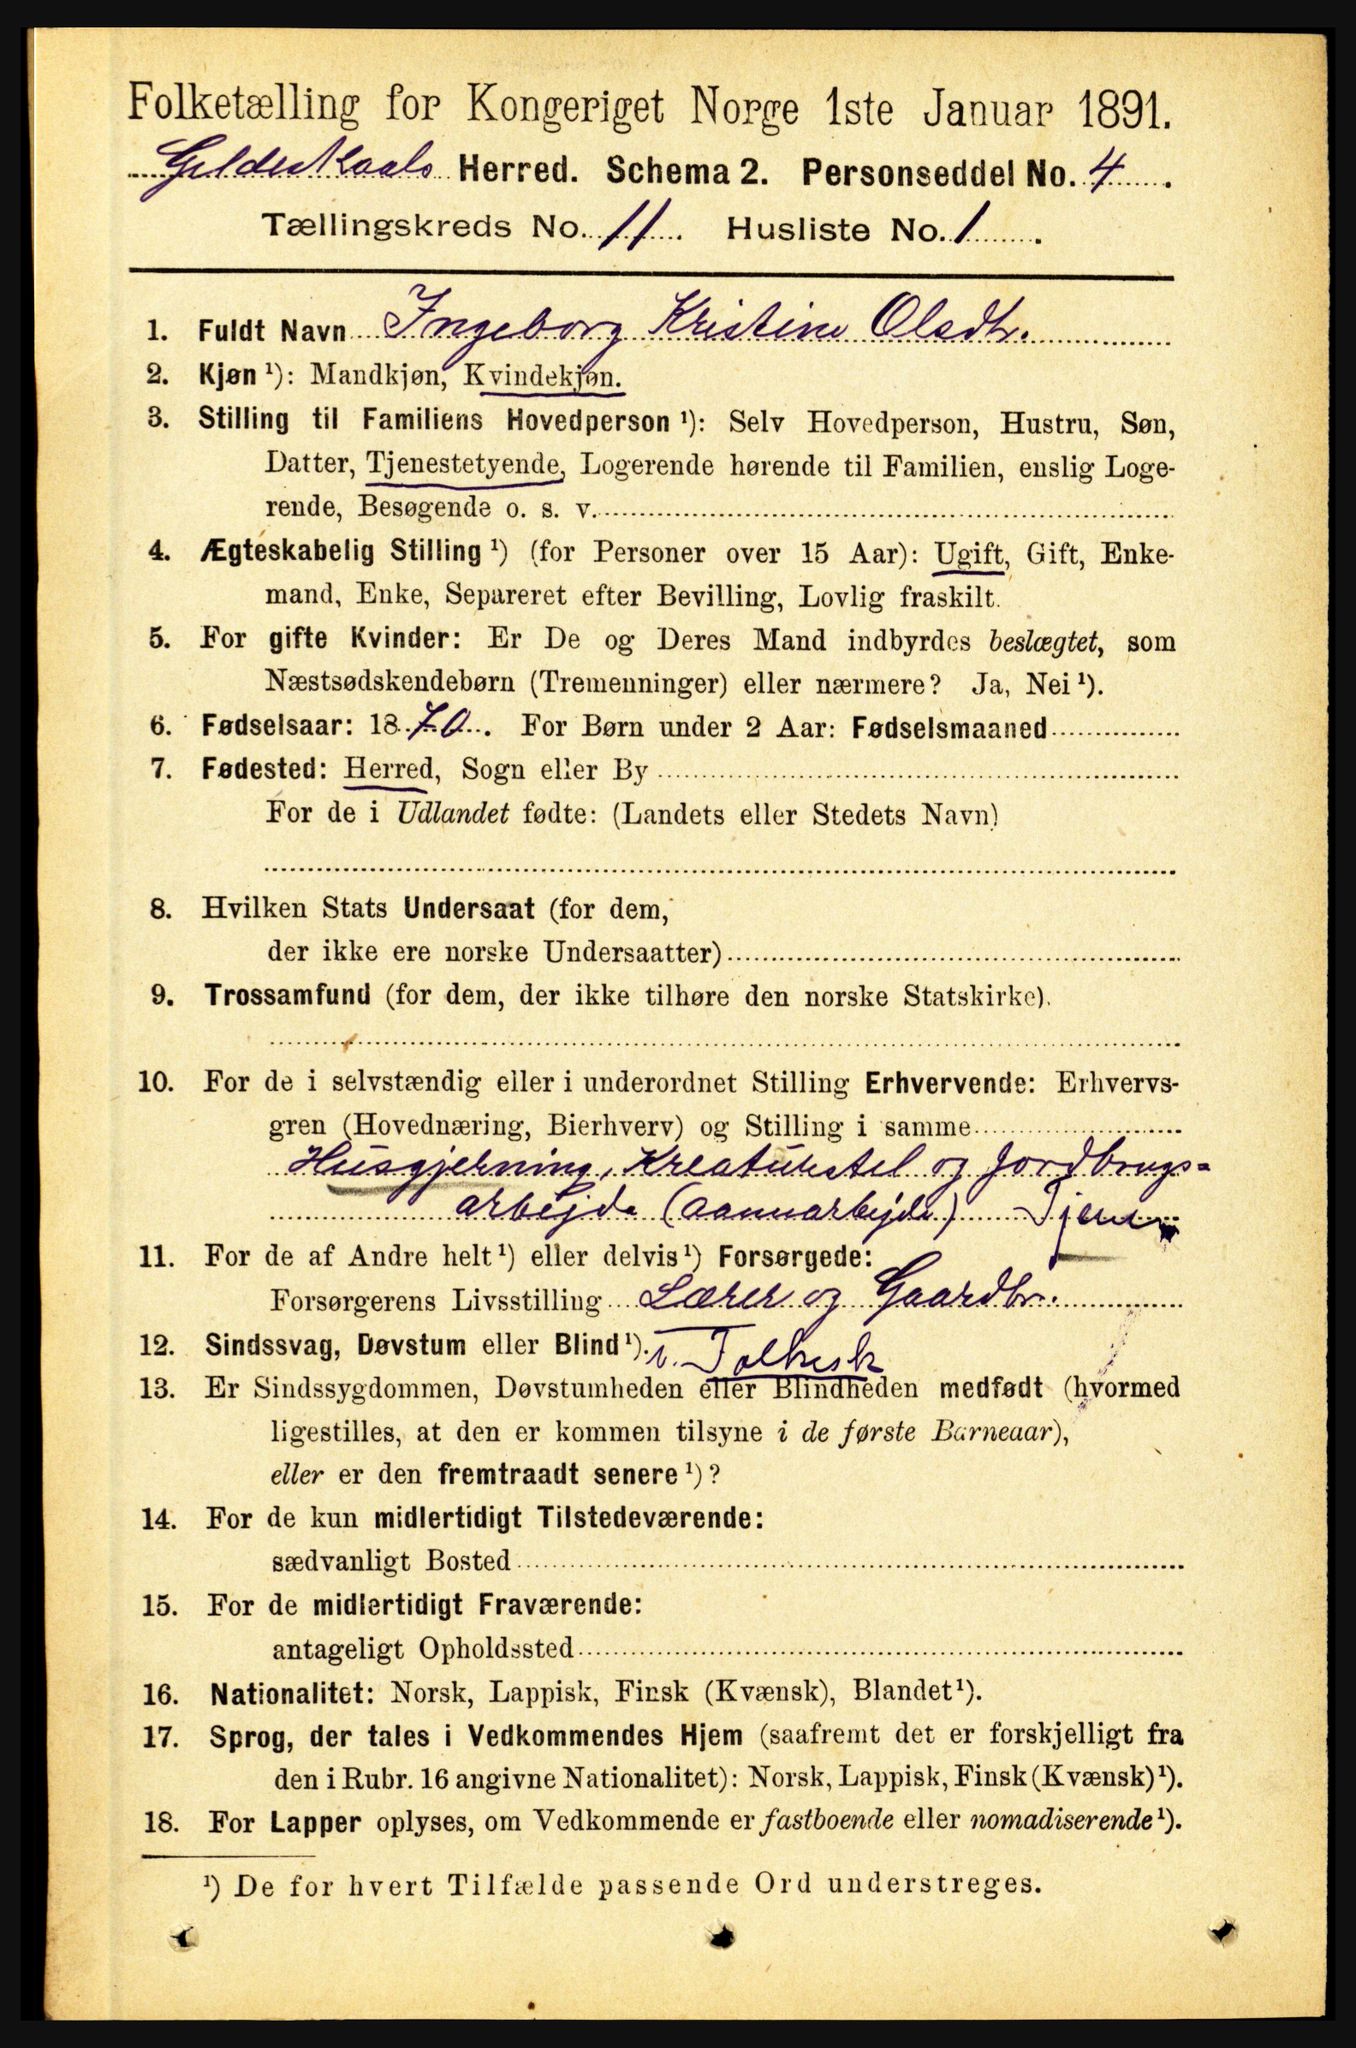 Folketælling for Kongeriget Norge 1ste Januar 1891.
Gildeskaals Herred. Schema 2. Personseddel No. 4
Tællingskreds No. 11. Husliste No. 1
1. Fuldt Navn Ingeborg Kristine Olsdtr.
2. Kjøn ¹): Mandkjøn, Kvindekjøn.
3. Stilling til Familiens Hovedperson ¹): Selv Hovedperson, Hustru, Søn,
Datter, Tjenestetyende, Logerende hørende til Familien, enslig Loge-
rende, Besøgende o. s. v.
4. Ægteskabelig Stilling ¹) (for Personer over 15 Aar): Ugift, Gift, Enke-
mand, Enke, Separeret efter Bevilling, Lovlig fraskilt.
5. For gifte Kvinder: Er De og Deres Mand indbyrdes beslægtet, som
Næstsødskendebørn (Tremenninger) eller nærmere? Ja, Nei ¹).
6. Fødselsaar: 1870. For Børn under 2 Aar: Fødselsmaaned
7. Fødested: Herred, Sogn eller By
For de i Udlandet fødte: (Landets eller Stedets Navn)
8. Hvilken Stats Undersaat (for dem,
der ikke ere norske Undersaatter)
9. Trossamfund (for dem, der ikke tilhøre den norske Statskirke).
10. For de i selvstændig eller i underordnet Stilling Erhvervende: Erhvervs-
gren (Hovednæring, Bierhverv) og Stilling i samme
Husgjerning, Kreaturstel og Jordbrugs-
arbejde (aannarbejde) Tjener
11. For de af Andre helt ¹) eller delvis ¹) Forsørgede:
Forsørgerens Livsstilling Lærer og Gaardbr.
12. Sindssvag, Døvstum eller Blind ¹). v. Folkesk
13. Er Sindssygdommen, Døvstumheden eller Blindheden medfødt (hvormed
ligestilles, at den er kommen tilsyne i de første Barneaar),
eller er den fremtraadt senere ¹)?
14. For de kun midlertidigt Tilstedeværende:
sædvanligt Bosted
15. For de midlertidigt Fraværende:
antageligt Opholdssted
16. Nationalitet: Norsk, Lappisk, Finsk (Kvænsk), Blandet ¹).
17. Sprog, der tales i Vedkommendes Hjem (saafremt det er forskjelligt fra
den i Rubr. 16 angivne Nationalitet): Norsk, Lappisk, Finsk (Kvænsk) ¹).
18. For Lapper oplyses, om Vedkommende er fastboende eller nomadiserende ¹).
¹) De for hvert Tilfælde passende Ord understreges.